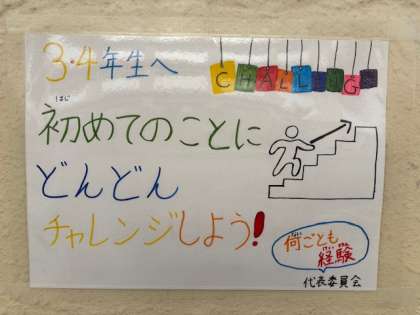 3・4年生へ
CHALLENGE
はじ
初めてのことに
どんどん
チャレンジしよう!
何ごとも
経験
代表委員会